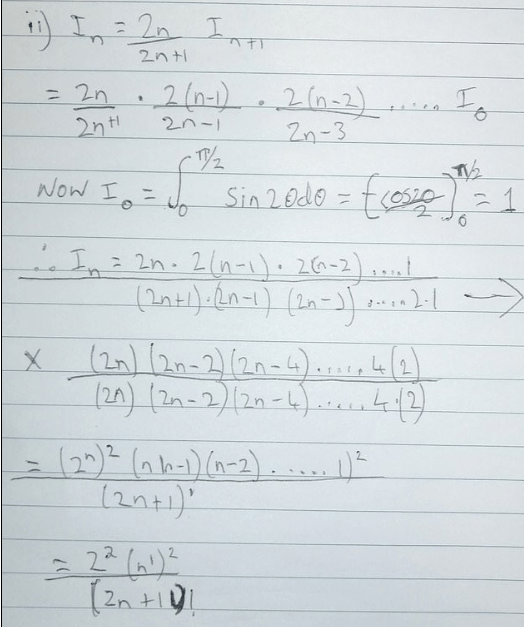 ii) I_n = 2n/(2n+1) I_{n+1}
= 2n/(2n+1) · 2(n-1)/(2n-1) · 2(n-2)/(2n-3) ..... I_0
NOW I_0 = ∫_0^{π/2} sin2θdθ = [-cos2θ/2]_0^{π/2} = 1
∴ I_n = 2n · 2(n-1) · 2(n-2) .... 1 / (2n+1)·(2n-1) (2n-3) ..... 2·1 →
× (2n) (2n-2) (2n-4) ..... 4(2) / (2n) (2n-2) (2n-4) ..... 4·(2)
= (2^n)^2 (n(n-1)(n-2) ...... 1)^2 / (2n+1)!
= 2^2 (n!)^2 / (2n+1)!